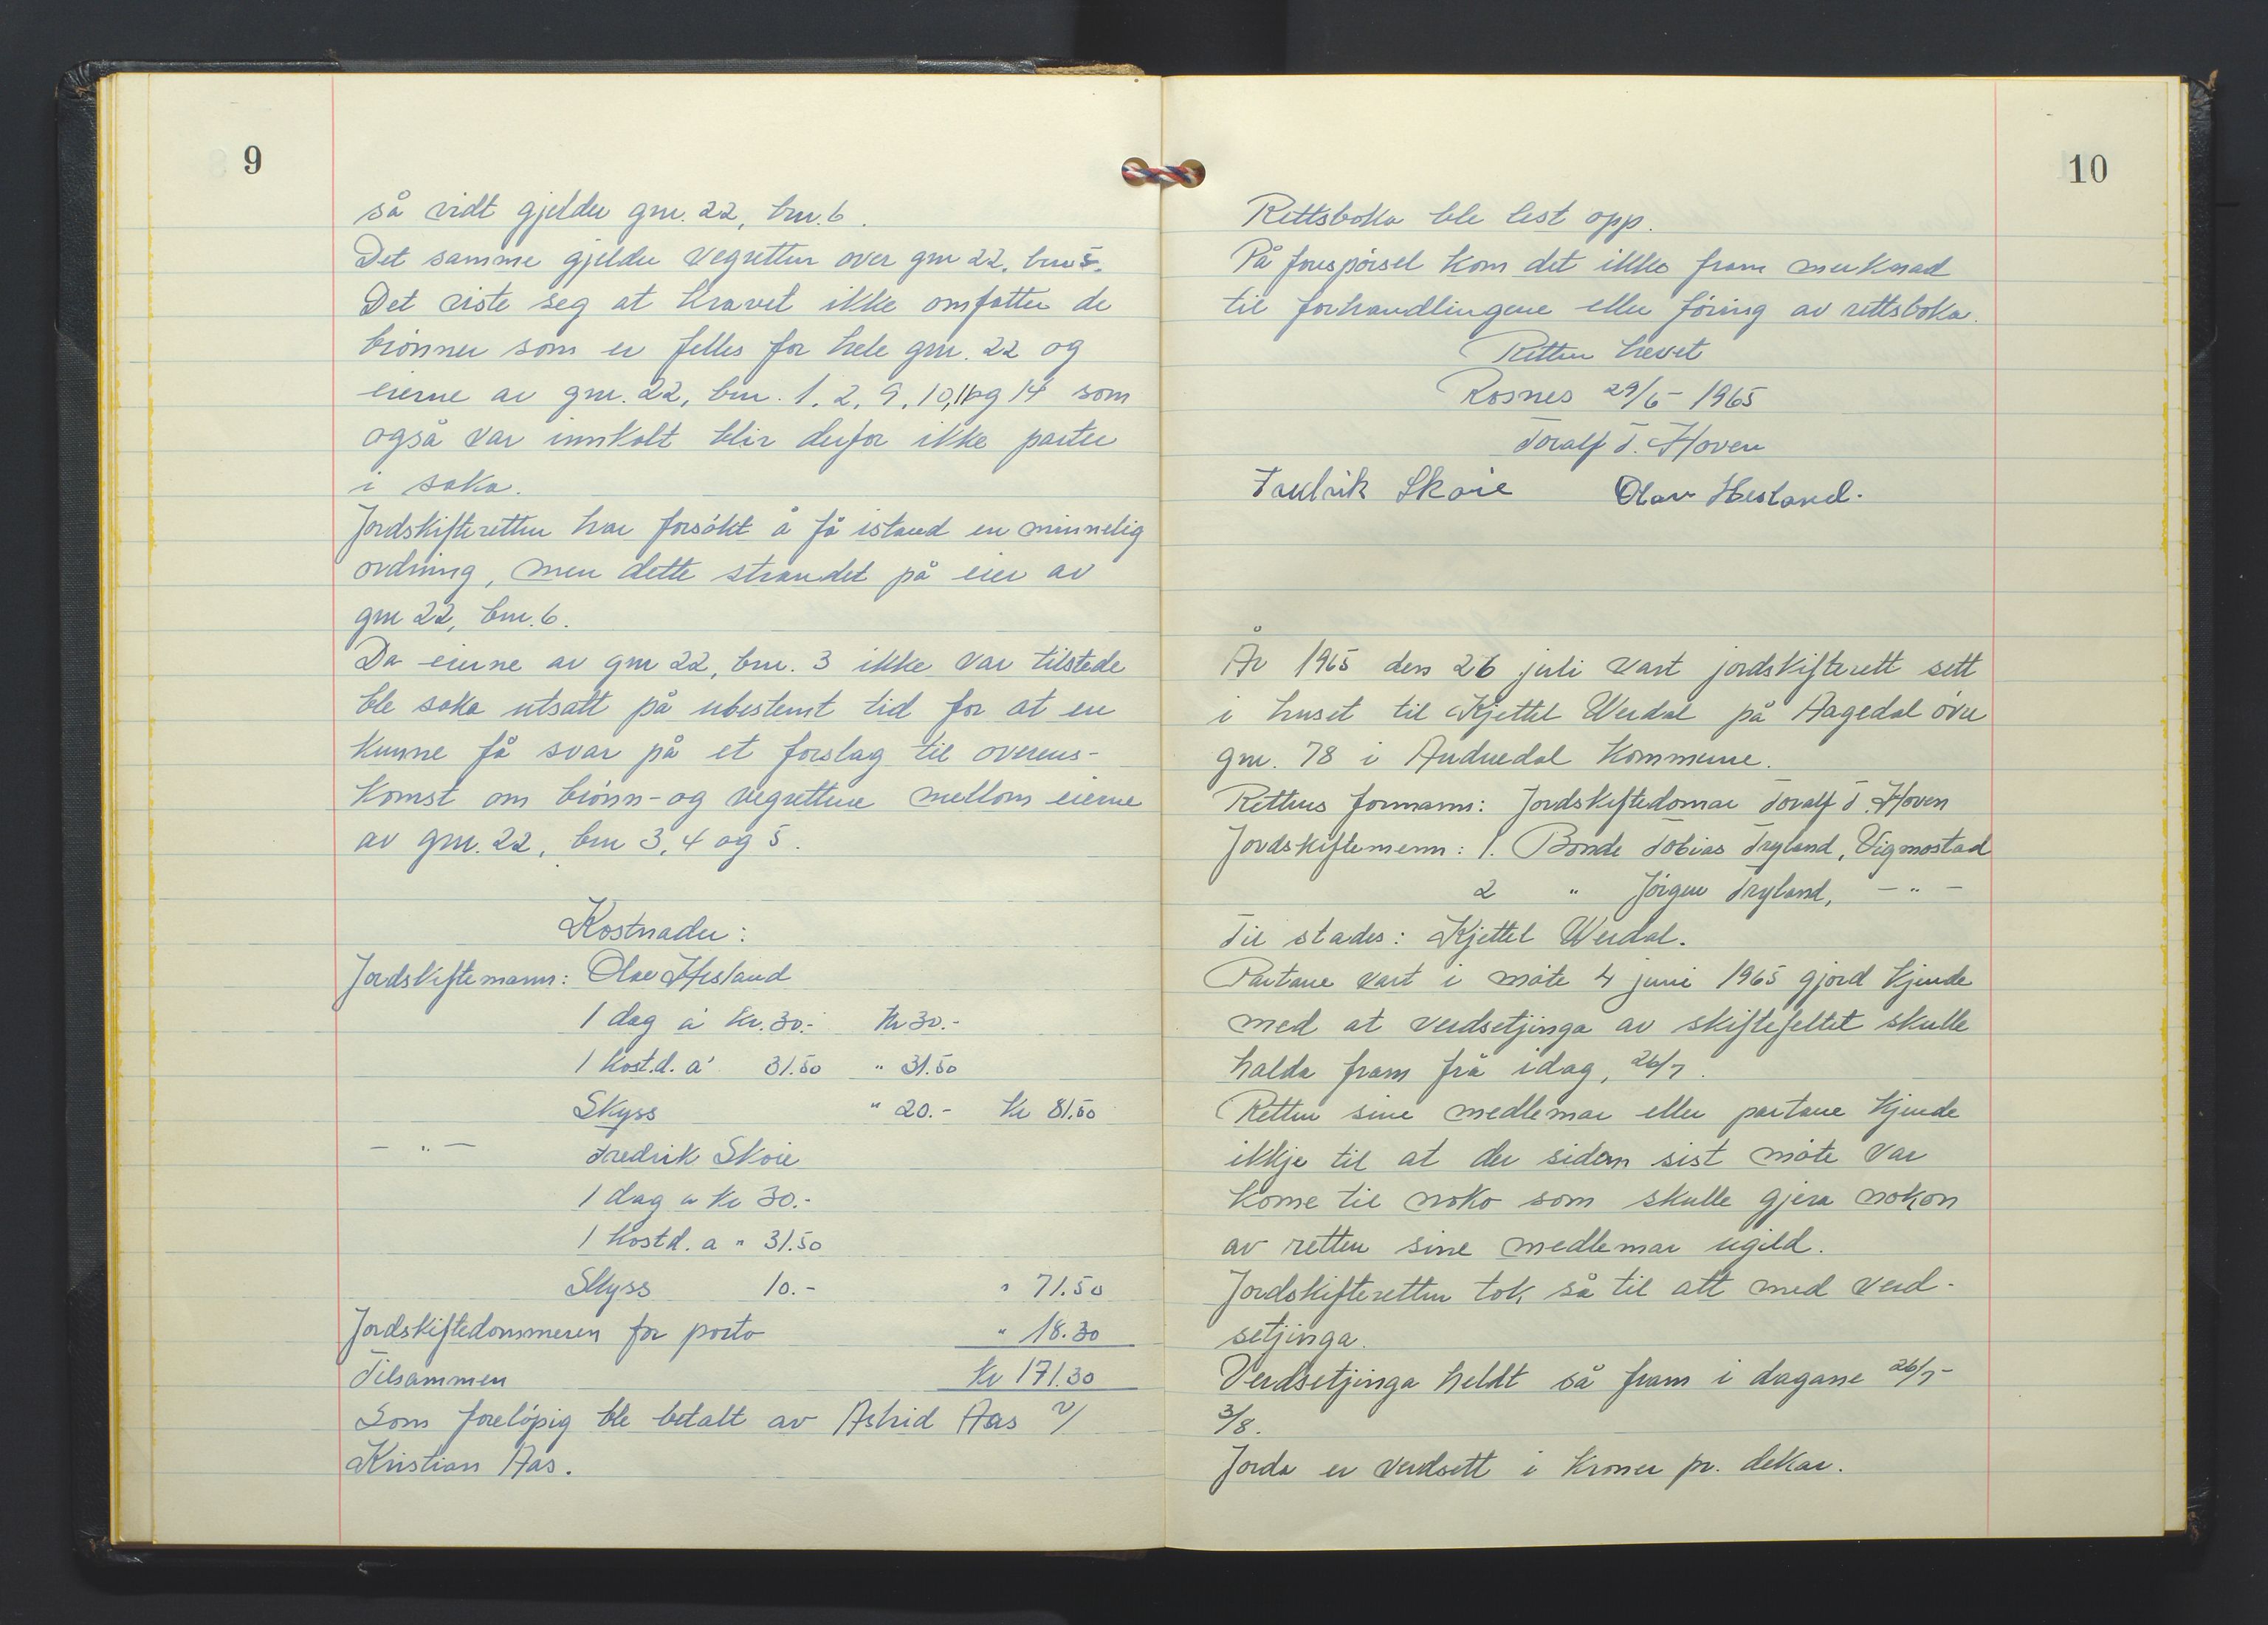 9
så vidt gjelder gnr. 22, bnr. 6.
Det samme gjelder vegretten over gnr 22, bnr 5.
Det viste seg at kravet ikke omfatter de
brönner som er felles for hele gnr. 22 og
eierne av gnr. 22, bnr. 1, 2, 9, 10, 11 og 14 som
også var innkalt blir derfor ikke parter
i saka.
Jordskifteretten har forsökt å få istand en minnelig
ordning, men dette strandet på eier av
gnr 22, bnr. 6.
Da eierne av gnr 22, bnr. 3 ikke var tilstede
ble saka utsatt på ubestemt tid for at en
kunne få svar på et forslag til overens-
komst om brönn- og vegrettene mellom eierne
av gnr. 22, bnr 3, 4 og 5.
Kostnader:
Jordskiftemann: Olav Hesland
1 dag á kr. 30.- kr 30.-
1 kost.d. á 31.50 " 31.50
Skyss " 20.- kr 81.50
- " - Fredrik Skoie
1 dag a kr 30.-
1 kostd. a " 31.50
Skyss 10.- " 71.50
Jordskiftedommeren for porto " 18.30
Tilsammen kr 171.30
Som forelöpig ble betalt av Astrid Aas v/
Kristian Aas.
10
Rettsboka ble lest opp.
På forespörsel kom det ikke fram merknad
til forhandlingene eller föring av rettsboka.
Retten hevet
Rosnes 29/6 - 1965
Toralf T. Hoven
Fredrik Skoie Olav Hesland.
År 1965 den 26 juli vart jordskifterett sett
i huset til Kjettel Werdal på Aagedal övre
gnr. 78 i Audnedal kommune.
Rettens formann: Jordskiftedomar Toralf T. Hoven
Jordskiftemenn: 1. Bonde Tobias Tryland, Vigmostad
2 " Jörgen Tryland, - " -
Til stades: Kjettel Werdal.
Partane vart i möte 4 juni 1965 gjord kjende
med at verdsetjinga av skiftefeltet skulle
halda fram frå idag, 26/7.
Retten sine medlemar eller partane kjende
ikkje til at der sidan sist möte var
kome til noko som skulle gjera nokon
av retten sine medlemar ugild.
Jordskifteretten tok så til att med verd-
setjinga.
Verdsetjinga heldt så fram i dagane 26/7 -
3/8.
Jorda er verdsett i kroner pr. dekar.